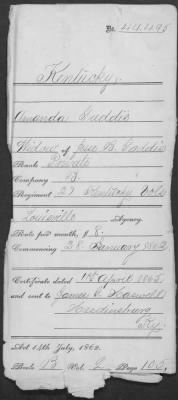 No. 44.495
Kentucky.
Amanda Gaddis
Widow of Jno. B. Gaddis
Rank Private
Company B.
Regiment 27 Kentucky Vols
Louisville Agency.
Rate per month, $ 8.
Commencing 28 February 1862
Certificate dated 1st April 1865
and sent to James C.
Hardinsburg
Ky.
Act 14th July, 1862.
Book B Vol. 2 Page 105.